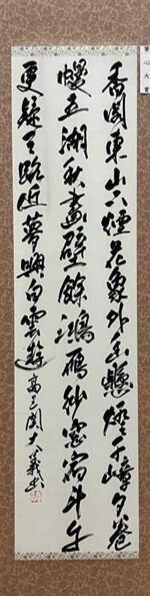 香閣東山下煙花象外幽懸燈千嶂夕卷
幔五湖秋畫壁餘鴻雁紗窗宿斗牛
更疑天路近夢與白雲遊 高三関大義書